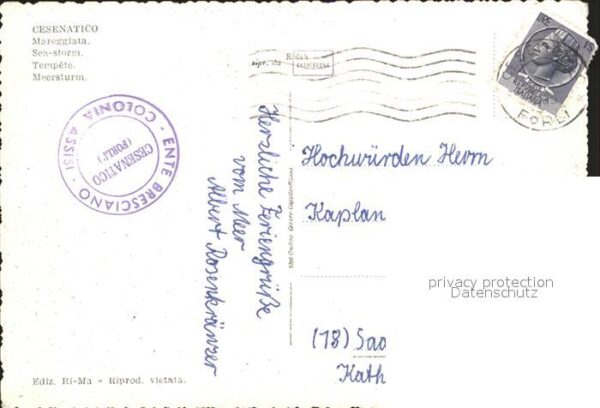 CESENATICO
Mareggiata.
Sea-storm.
Tempête.
Meersturm.
ENTE BRESCIANO - COLONIA ASSISI -
CESENATICO
(FORLI')
Herzliche Feriengrüße
vom Meer
Albert Rosenkränzer
Kodak
LIRE 15
FORLI
Hochwürden Herrn
Kaplan
privacy protection
Datenschutz
(18) Sao
Kath
Ediz. Ri-Ma - Riprod. vietata.